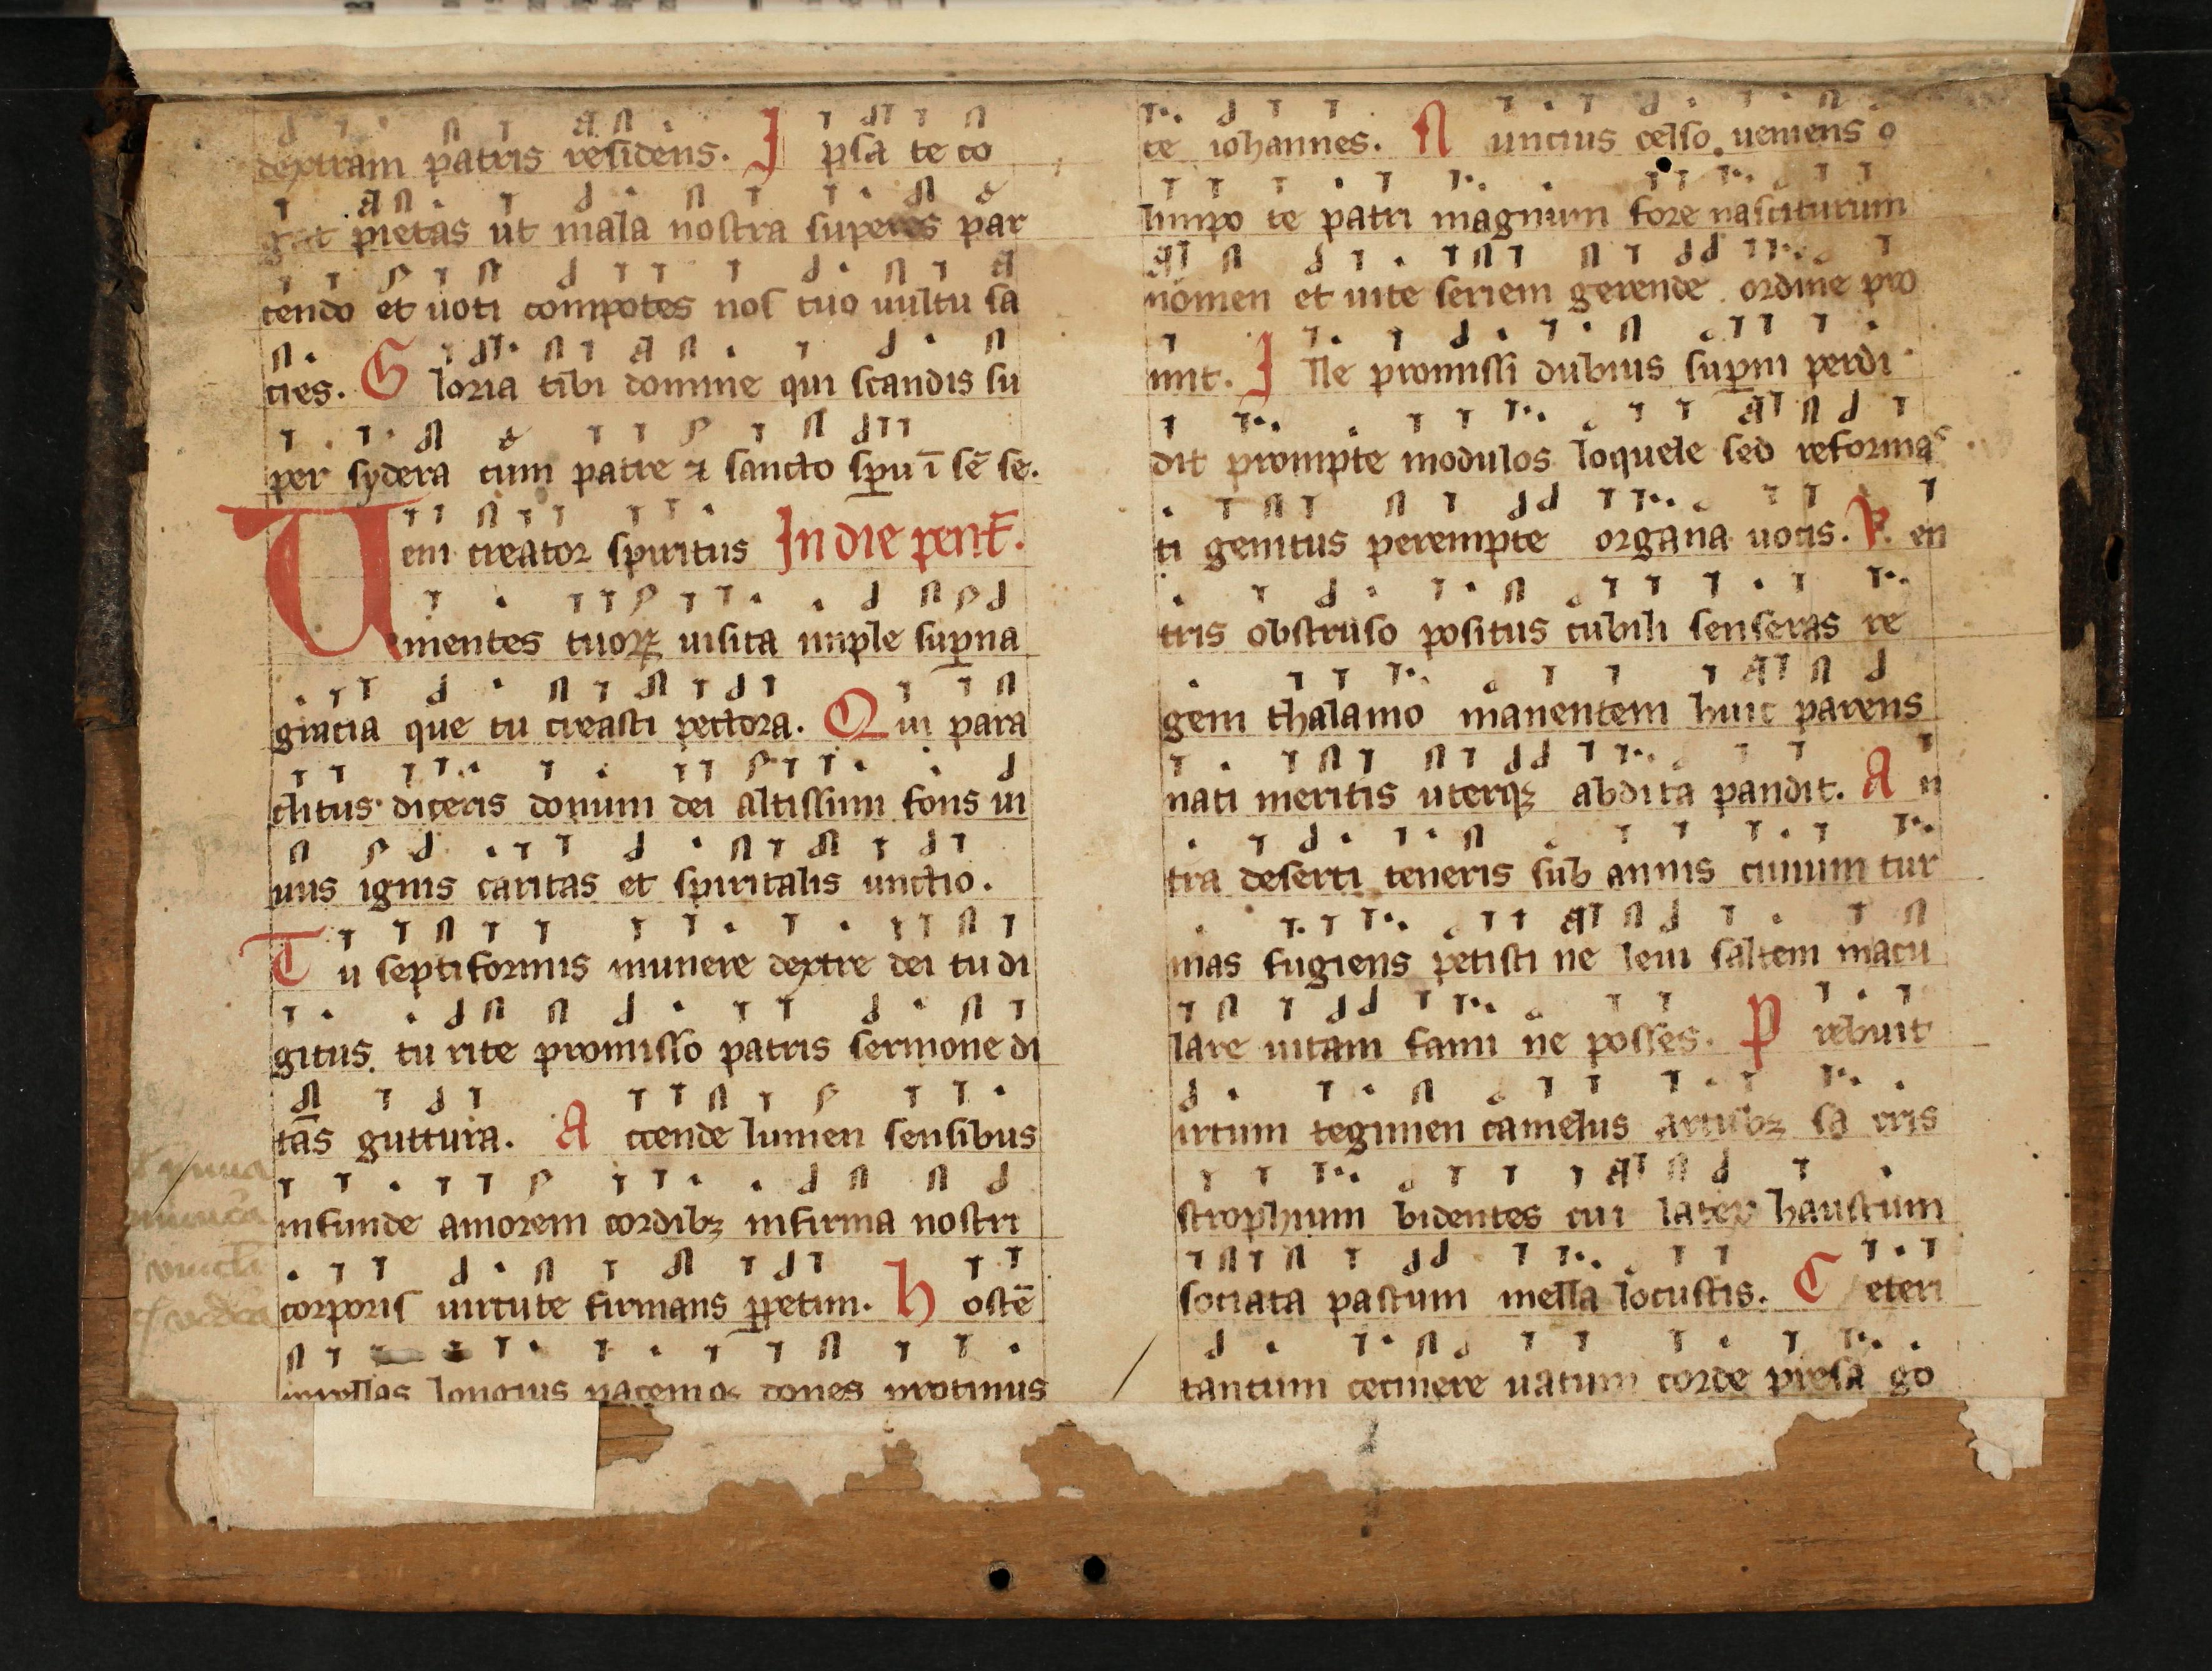 dextram patris residens. I psa te co
gat pietas ut mala nostra superes par
cendo et uoti compotes nos tuo uultu sa
cies. G loria tibi domine qui scandis su
per sydera cum patre ⁊ sancto sp̅u ī sē se.
U eni creator spiritus In die pent̄.
mentes tuoꝝ uisita imple sup̅na
gracia que tu creasti pectora. Q ui para
clitus diceris donum dei altissimi fons ui
uus ignis caritas et spiritalis unctio.
T u septiformis munere dextre dei tu di
gitus. tu rite promisso patris sermone di
tās guttura. A ccende lumen sensibus
infunde amorem cordibꝫ infirma nostri
corporis uirtute firmans ꝑpetim. h ostē
repellas longius pacemqꝫ dones protinus
te iohannes. N uncius celso ueniens o
limpo te patri magnum fore nasciturum
nomen et uite seriem gerende ordine pro
mit. I lle promissi dubius sup̅ni perdi
dit prompte modulos loquele sed reformas
ti genitus perempte organa uocis. V en
tris obstruso positus cubili senseras re
gem thalamo manentem huic parens
nati meritis uterqꝫ abdita pandit. A n
tra deserti teneris sub annis ciuium tur
mas fugiens petisti ne leui saltem macu
lare uitam fami ne posses. P rebuit
irtum tegimen camelus artubꝫ sa cris
strophium bidentes cui latex haustum
sociata pastum mella locustis. C eteri
tantum cecinere uatum corde presa go